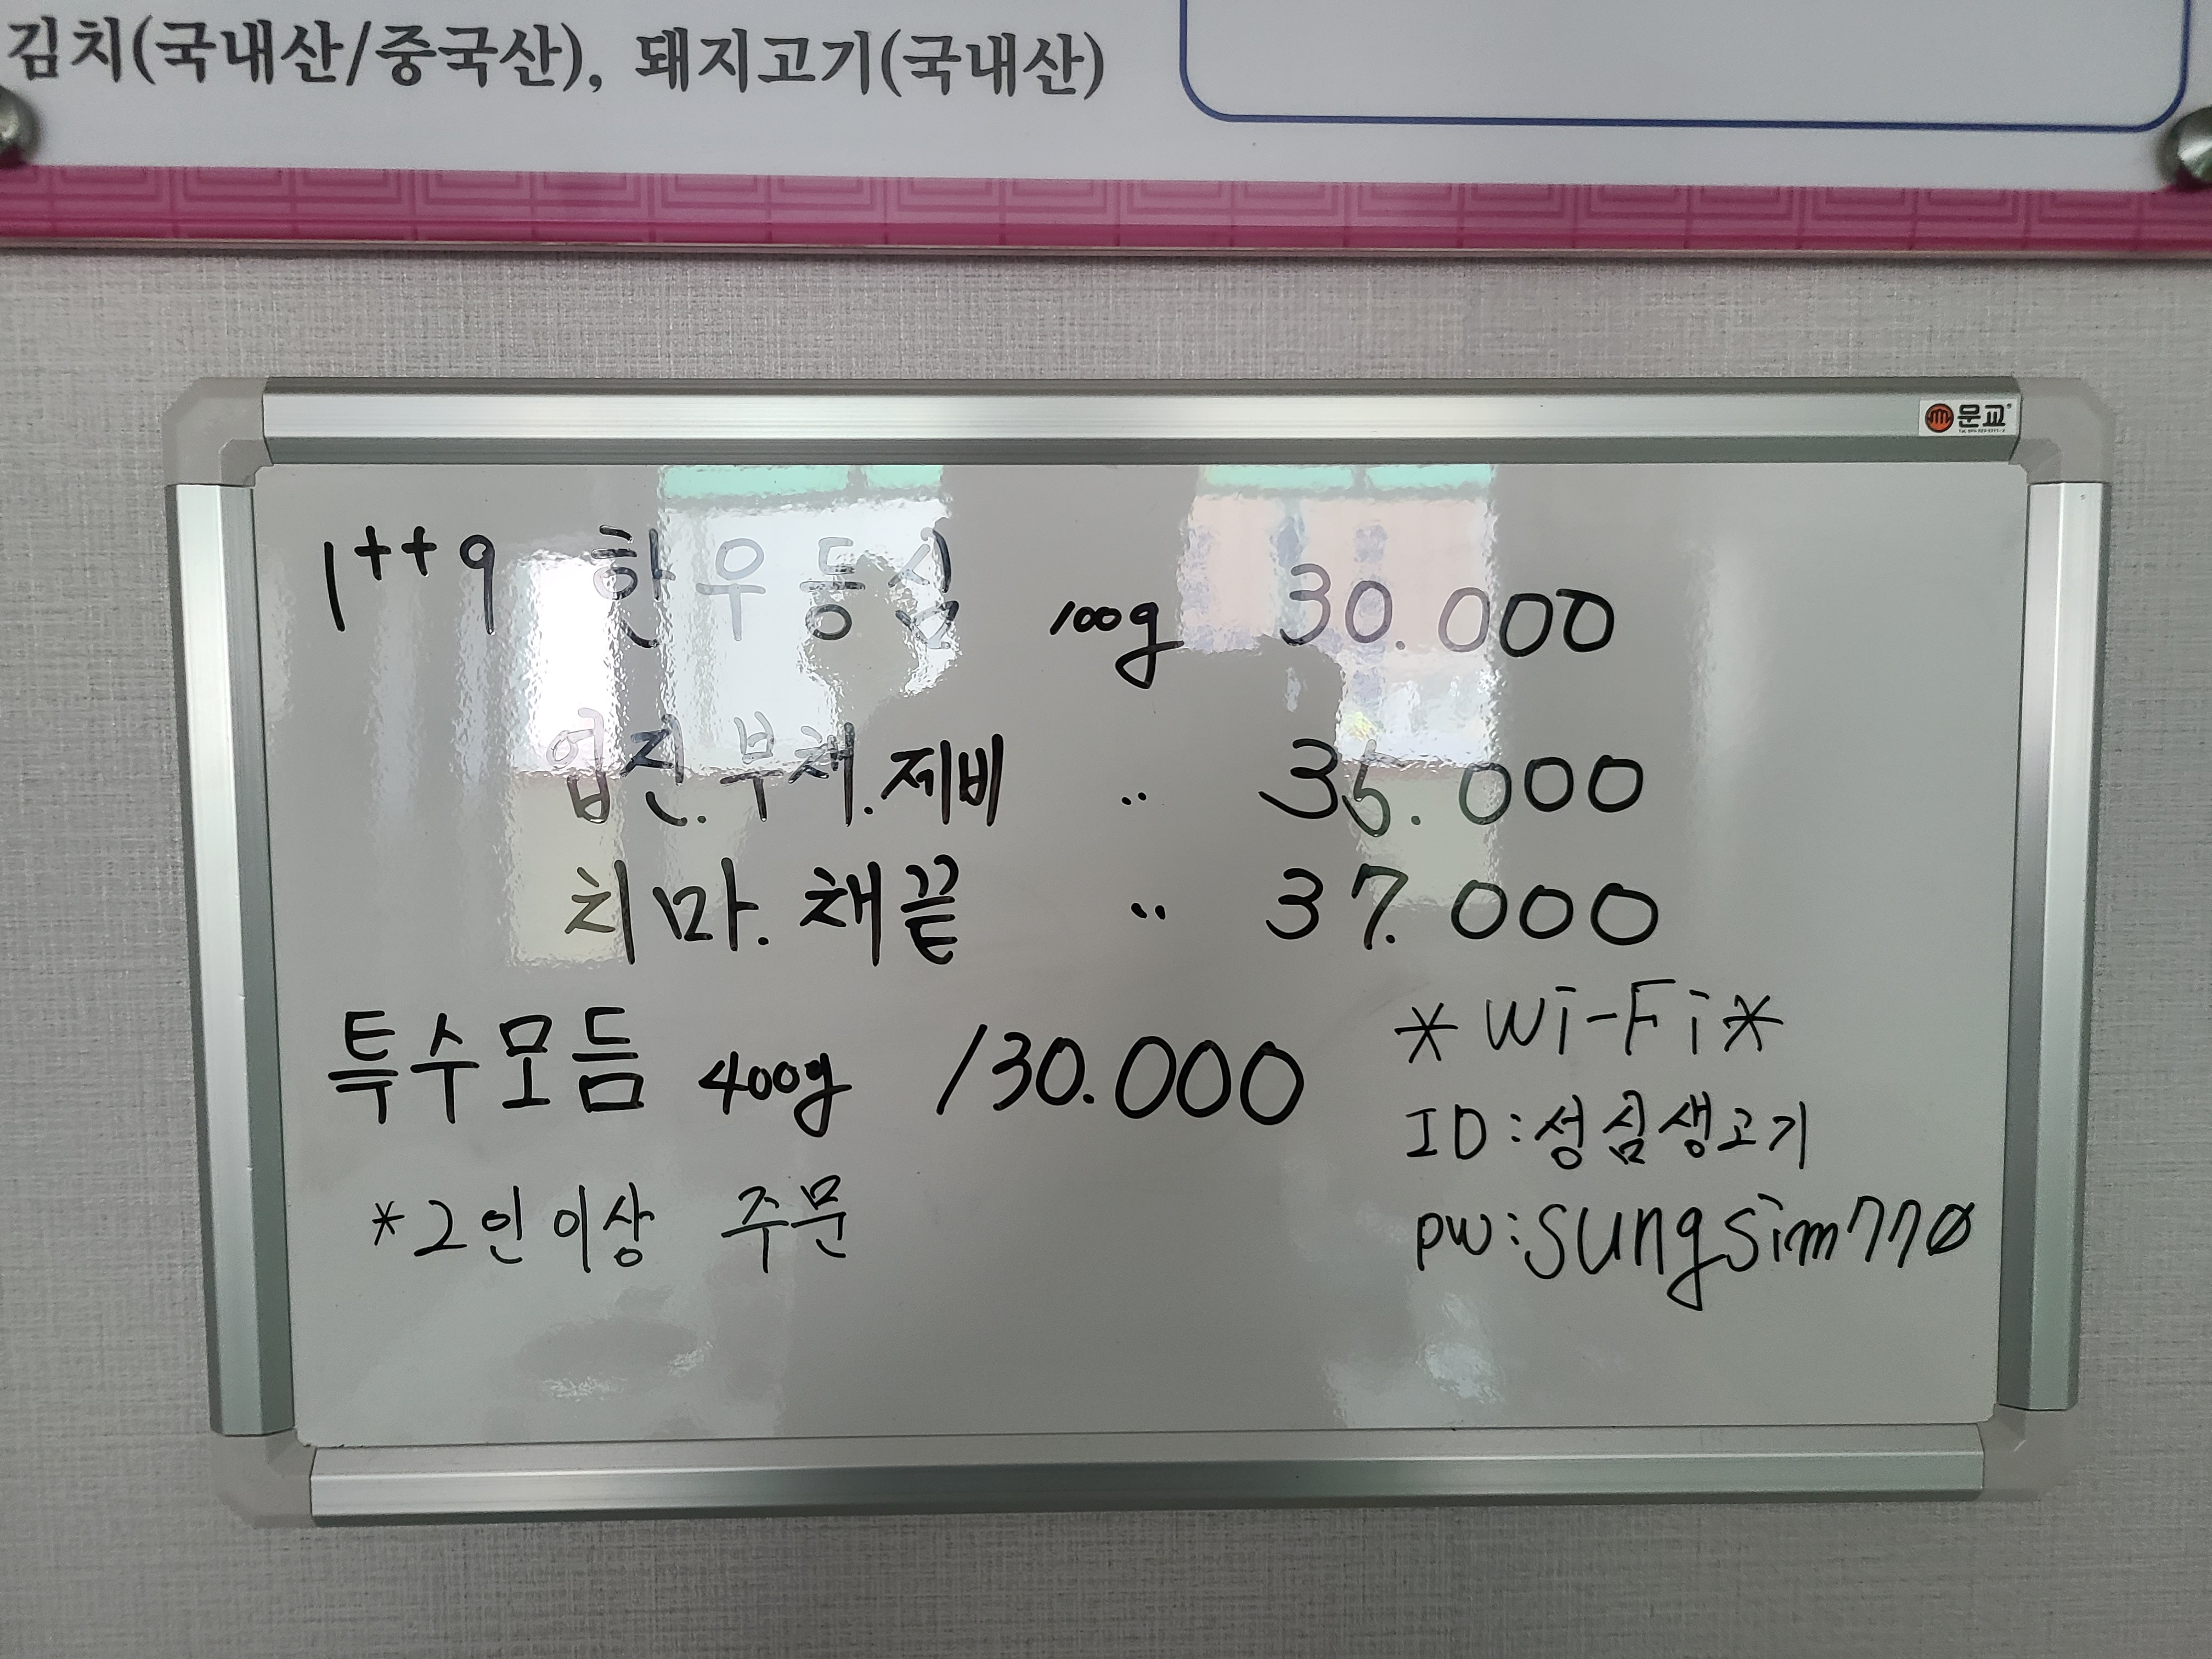 김치(국내산/중국산), 돼지고기(국내산)
문교
1++9 한우 등심 100g 30.000
업진.부채.제비 〃 35.000
치마.채끝 〃 37.000
특수모듬 400g 130.000
*2인이상 주문
*Wi-Fi*
ID:성심생고기
PW:sungsim770